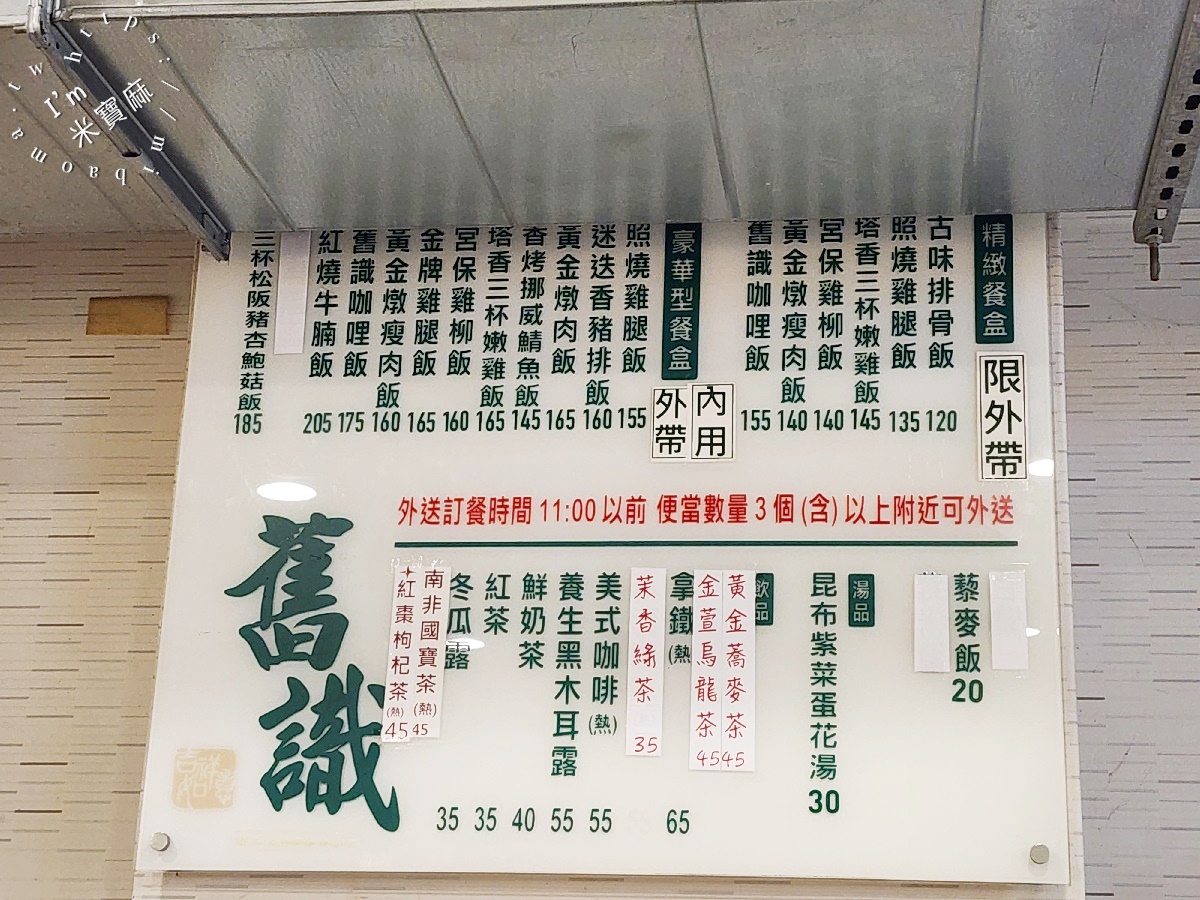 精緻餐盒
限外帶
古味排骨飯 120
照燒雞腿飯 135
塔香三杯嫩雞飯 145
宮保雞柳飯 140
黃金燉瘦肉飯 140
舊識咖哩飯 155
豪華型餐盒
內用
外帶
照燒雞腿飯 155
迷迭香豬排飯 160
黃金燉肉飯 165
香烤挪威鯖魚飯 145
塔香三杯嫩雞飯 165
宮保雞柳飯 160
金牌雞腿飯 165
黃金燉瘦肉飯 160
舊識咖哩飯 175
紅燒牛腩飯 205
三杯松阪豬杏鮑菇飯 185
外送訂餐時間 11:00 以前 便當數量 3 個 (含) 以上附近可外送
藜麥飯 20
湯品
昆布紫菜蛋花湯 30
飲品
黃金蕎麥茶 45
金萱烏龍茶 45
拿鐵(熱 65
茉香綠茶 35
美式咖啡(熱) 55
養生黑木耳露 55
鮮奶茶 40
紅茶 35
冬瓜露 35
南非國寶茶(熱) 45
紅棗枸杞茶(熱) 45
舊識
I'm
米寶麻